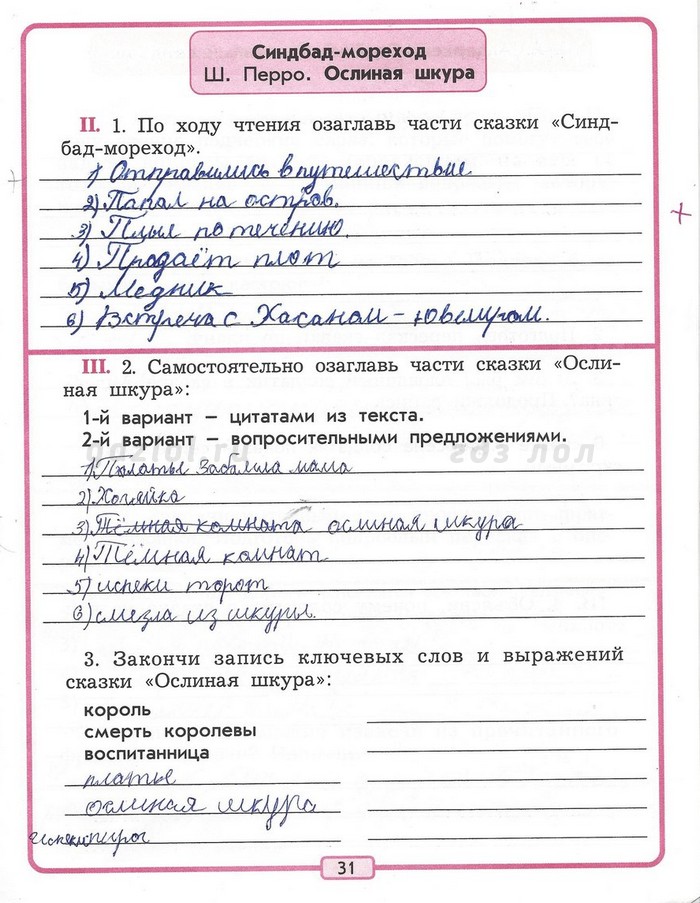 Синдбад-мореход
Ш. Перро. Ослиная шкура
II. 1. По ходу чтения озаглавь части сказки «Синд-
бад-мореход».
1) Отправились в путешествие
2) Папал на остров.
3) Плыл по течению.
4) Продаёт плот
5) Медник
6) Встреча с Хасаном - ювелиром.
III. 2. Самостоятельно озаглавь части сказки «Осли-
ная шкура»:
1-й вариант – цитатами из текста.
2-й вариант – вопросительными предложениями.
гдз лол
1) Платье мама
2) Хозяйка
3) Тёмная комната ослиная шкура
4) Тёмная комнат
5) испеки торот
6) из шкуры.
3. Закончи запись ключевых слов и выражений
сказки «Ослиная шкура»:
король
смерть королевы
воспитанница
платье
ослиная шкура
испеки пирог
31